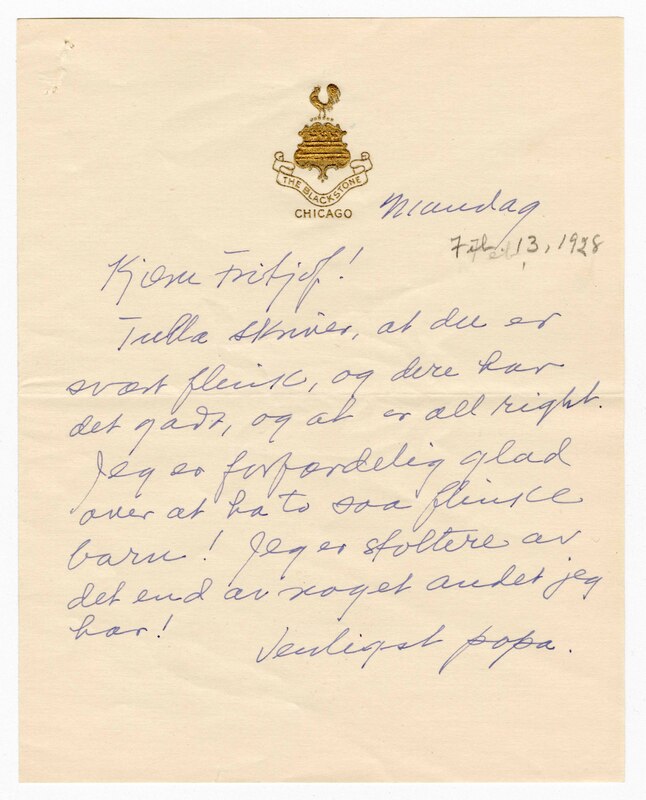 THE BLACKSTONE
CHICAGO
Mandag
Feb. 13, 1928
Kjære Fritjof!
Tulla skriver, at du er
svært flink, og dere har
det godt, og at er all right.
Jeg er forfærdelig glad
over at ha to saa flinke
barn! Jeg er stoltere av
det end av noget andet jeg
har!
Venligst papa.